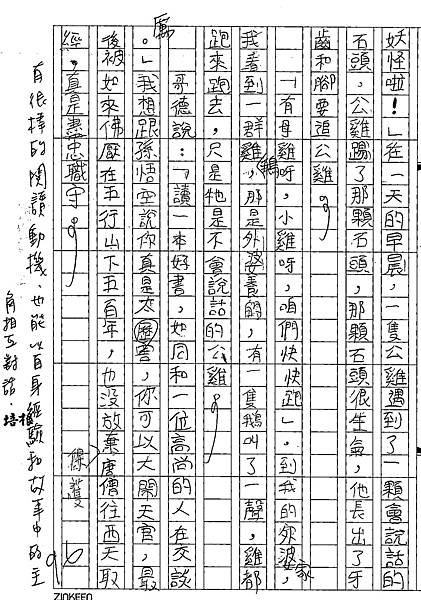 妖怪啦!」在一天的早晨,一隻公雞遇到了一顆會說話的
石頭,公雞踢了那顆石頭,那顆石頭很生氣,他長出了牙
齒和腳要追公雞。
「有母雞呀,小雞呀,咱們快快跑」,到我的外婆家
我看到一群雞,鴨那是外婆養的,有一隻鵝叫了一聲,雞都
跑來跑去,只是牠是不會說話的公雞。
哥德說:「讀一本好書,如同和一位高尚的人在交談
。」我想跟孫悟空說你真是太厲害,你可以大鬧天宮,最
厲
後被如來佛壓在五行山下五百年,也沒放棄唐僧往西天取
保護
經,真是盡忠職守。
有很棒的閱讀動機、也能以自身經驗和故事中的主
角相互對話.培禎
ZINKEED